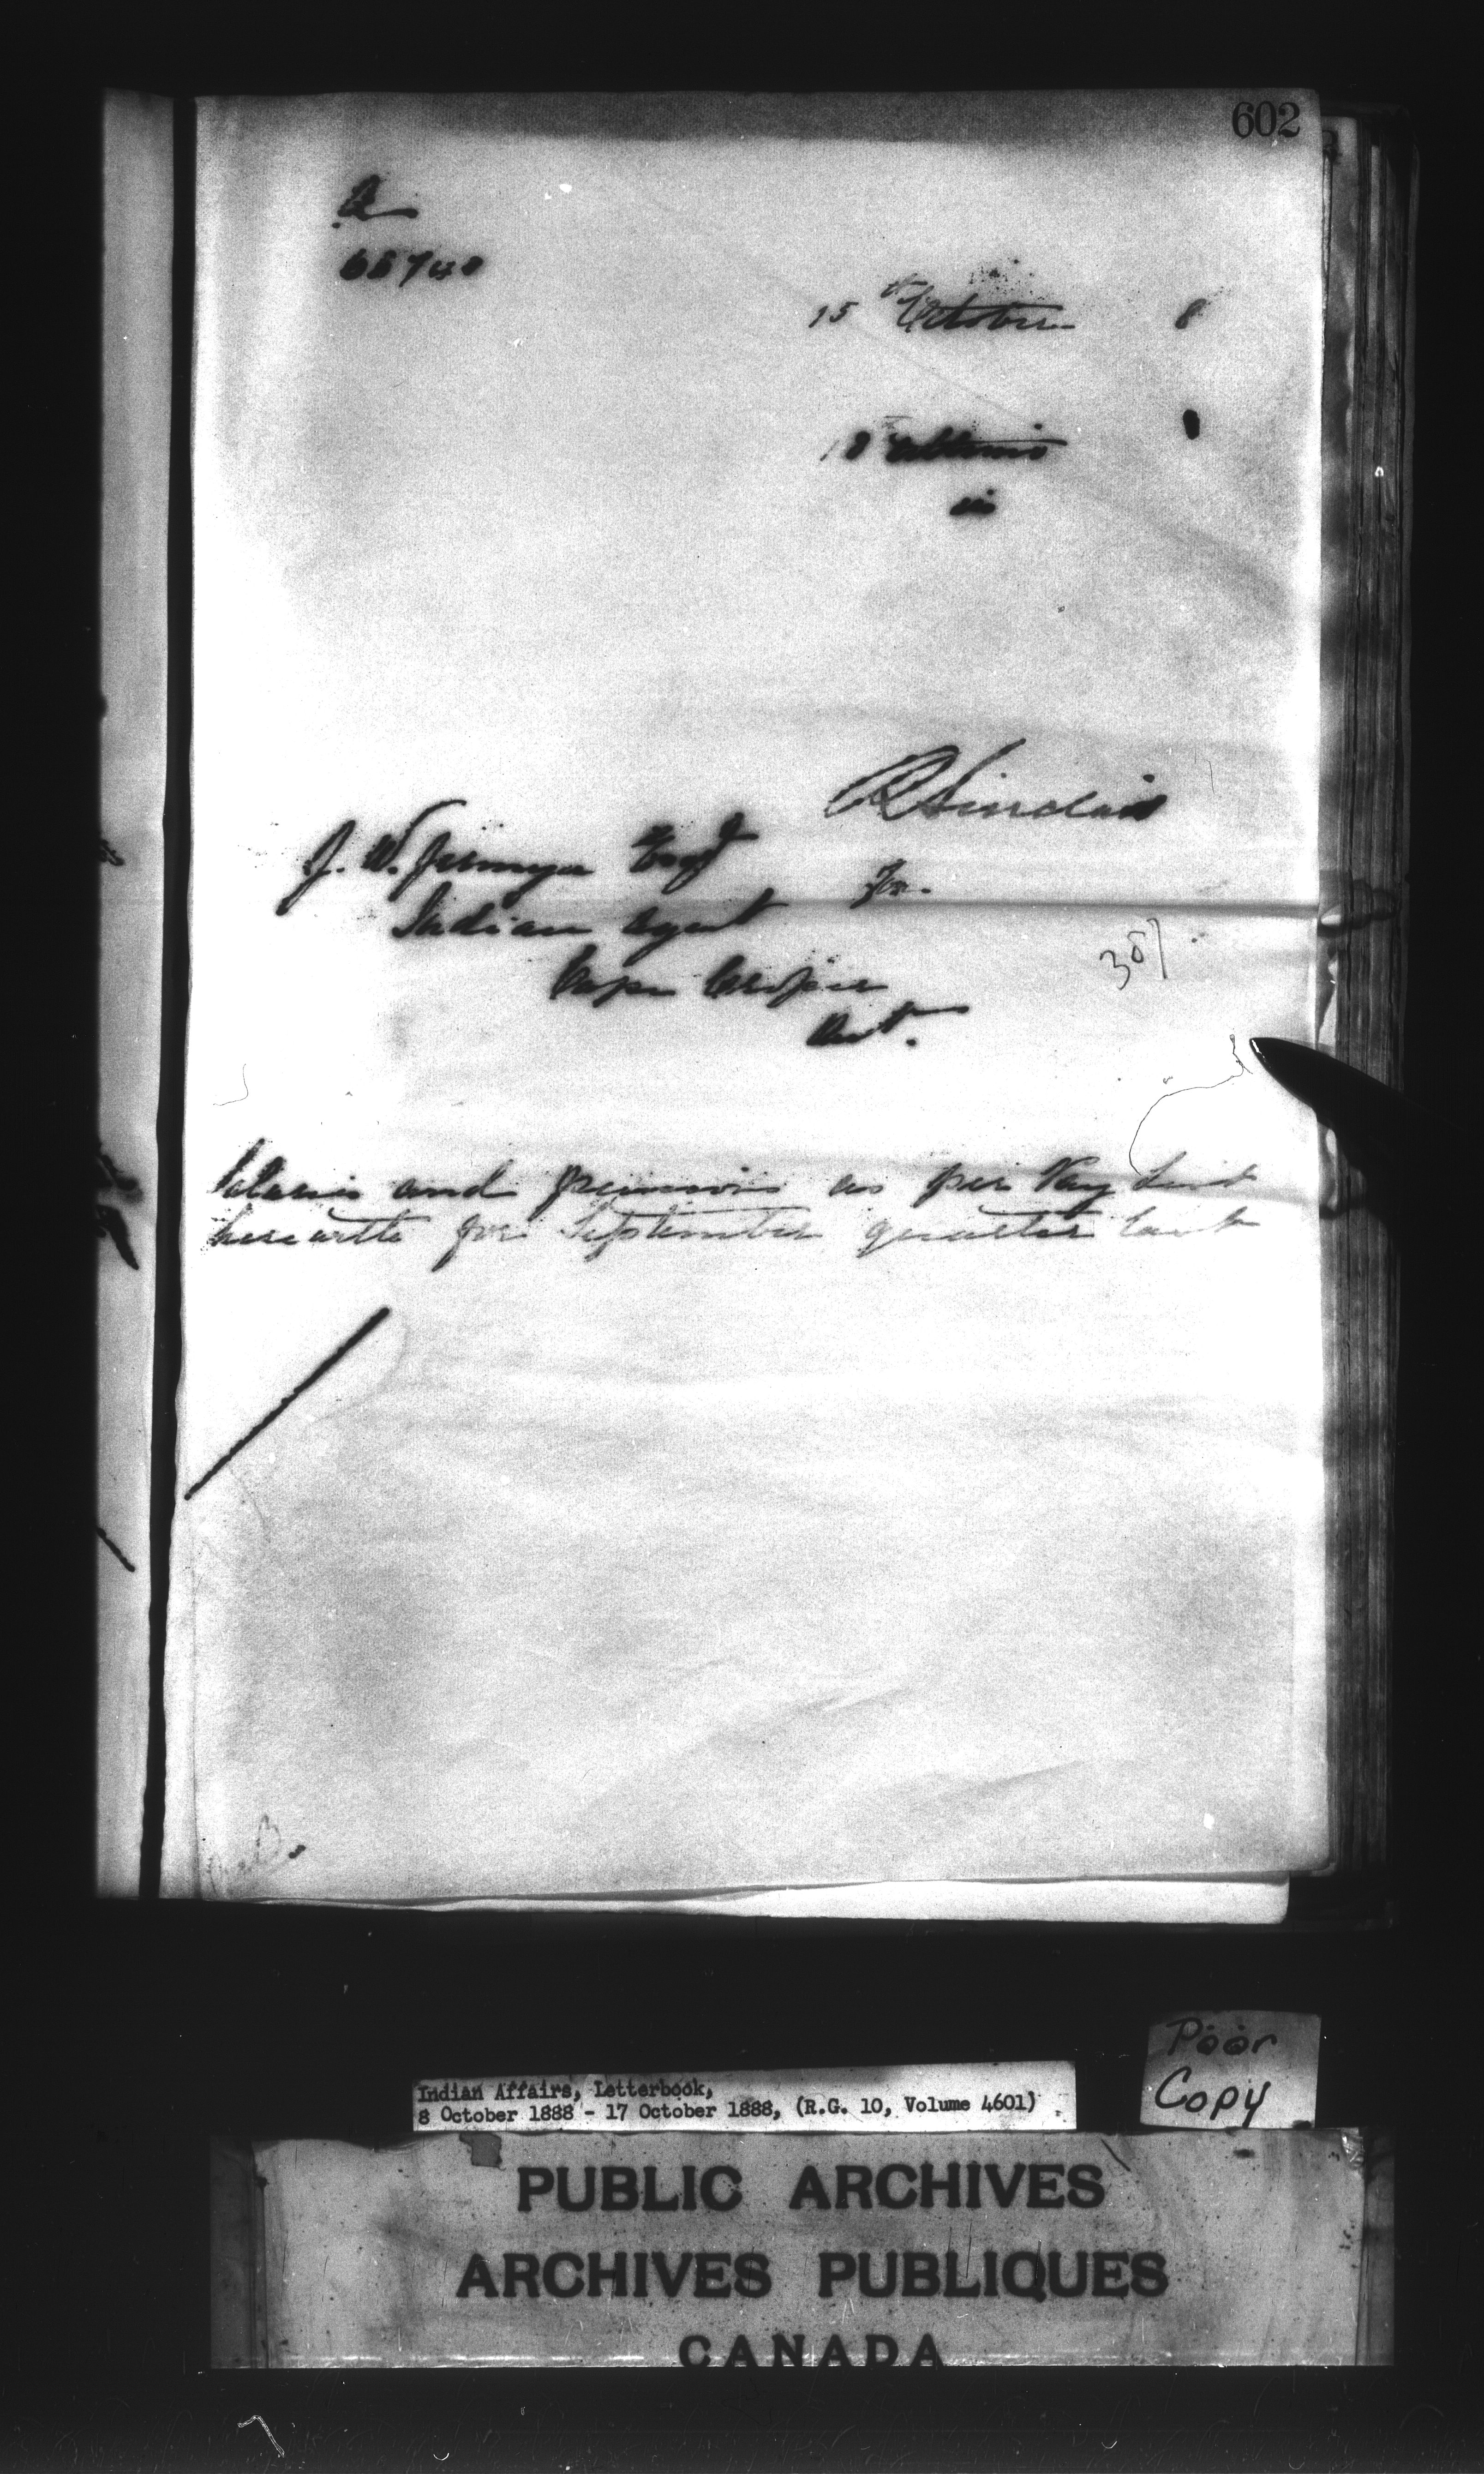 602
15th October 8
18th ultimo
R Sinclair
J. W. Jermyn Esq
for.
Indian Agent
Cape Croker
Ont.
Salaries and pensions as per Pay List
herewith for September quarter last
Poor
Copy
Indian Affairs, Letterbook,
8 October 1888 - 17 October 1888, (R.G. 10, Volume 4601)
PUBLIC ARCHIVES
ARCHIVES PUBLIQUES
CANADA